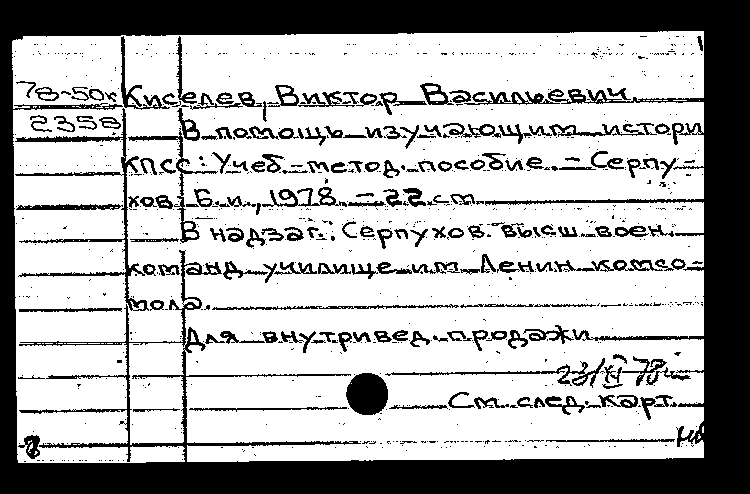 78-50к Киселев, Виктор Васильевич.
2358 В помощь изучающим истори
КПСС: Учеб.-метод. пособие. - Серпу-
хов: Б. и., 1978. - 22 см
В надзаг.: Серпухов. высш. воен.
команд. училище им. Ленин. комсо-
мола.
Для внутривед. продажи
23/XI 78
См. след. карт.